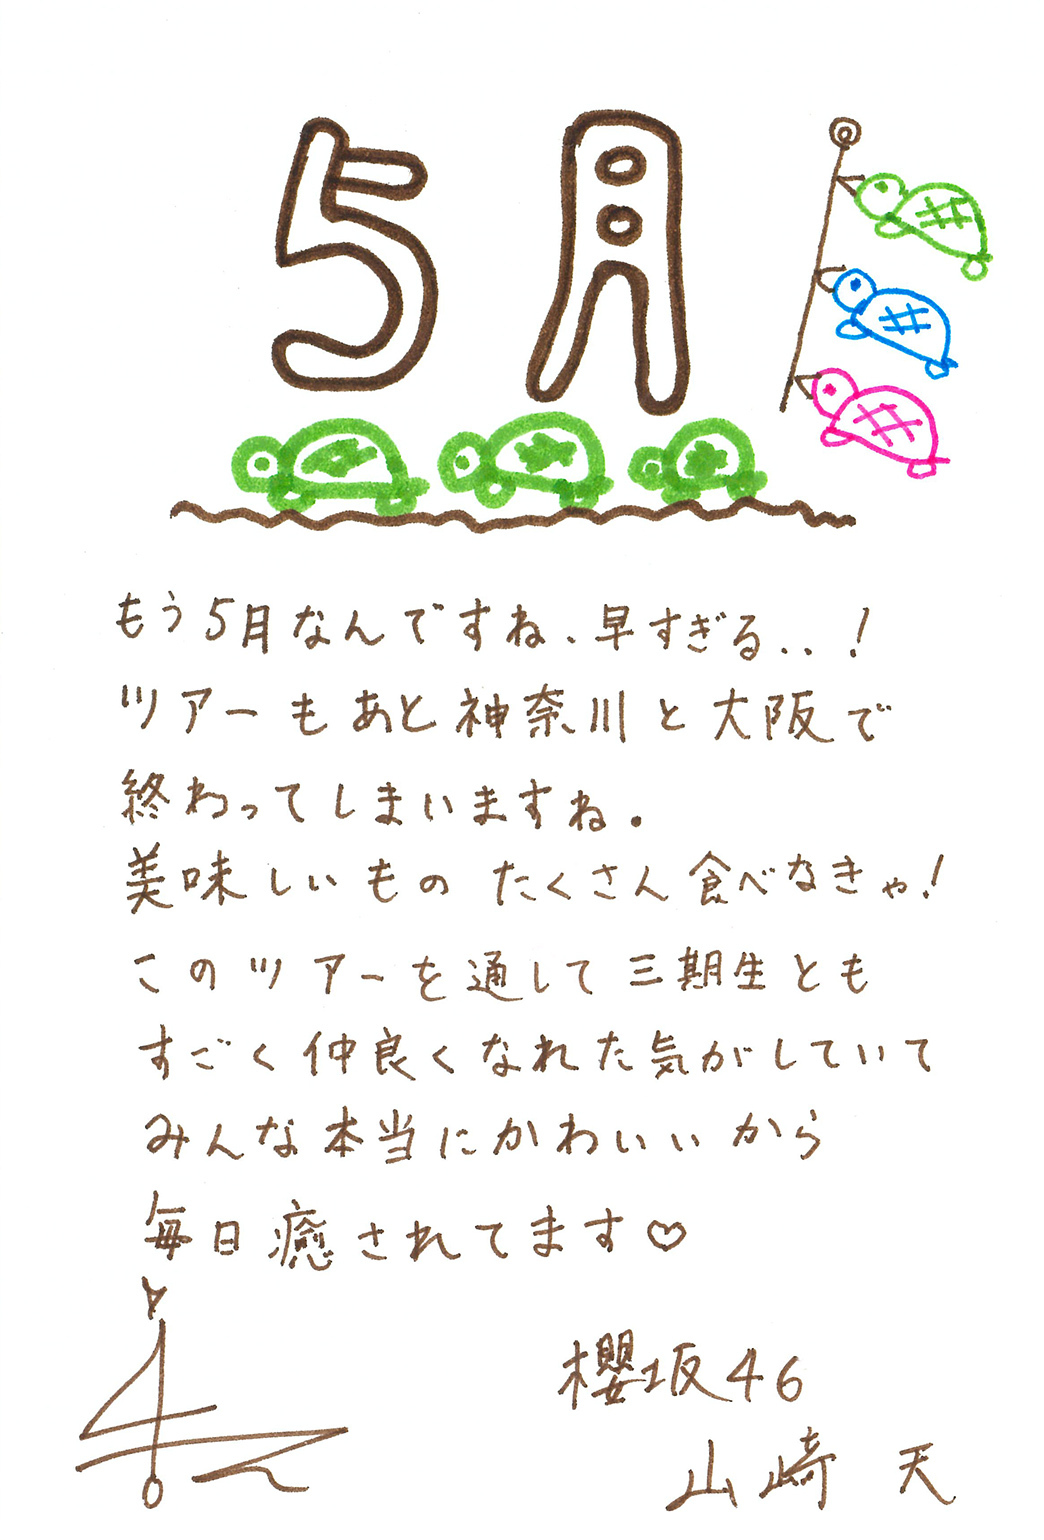 5月
もう5月なんですね、早すぎる..!
ツアーもあと神奈川と大阪で
終わってしまいますね。
美味しいものたくさん食べなきゃ!
このツアーを通して三期生とも
すごく仲良くなれた気がしていて
みんな本当にかわいいから
毎日癒されてます♡
櫻坂46
山﨑 天